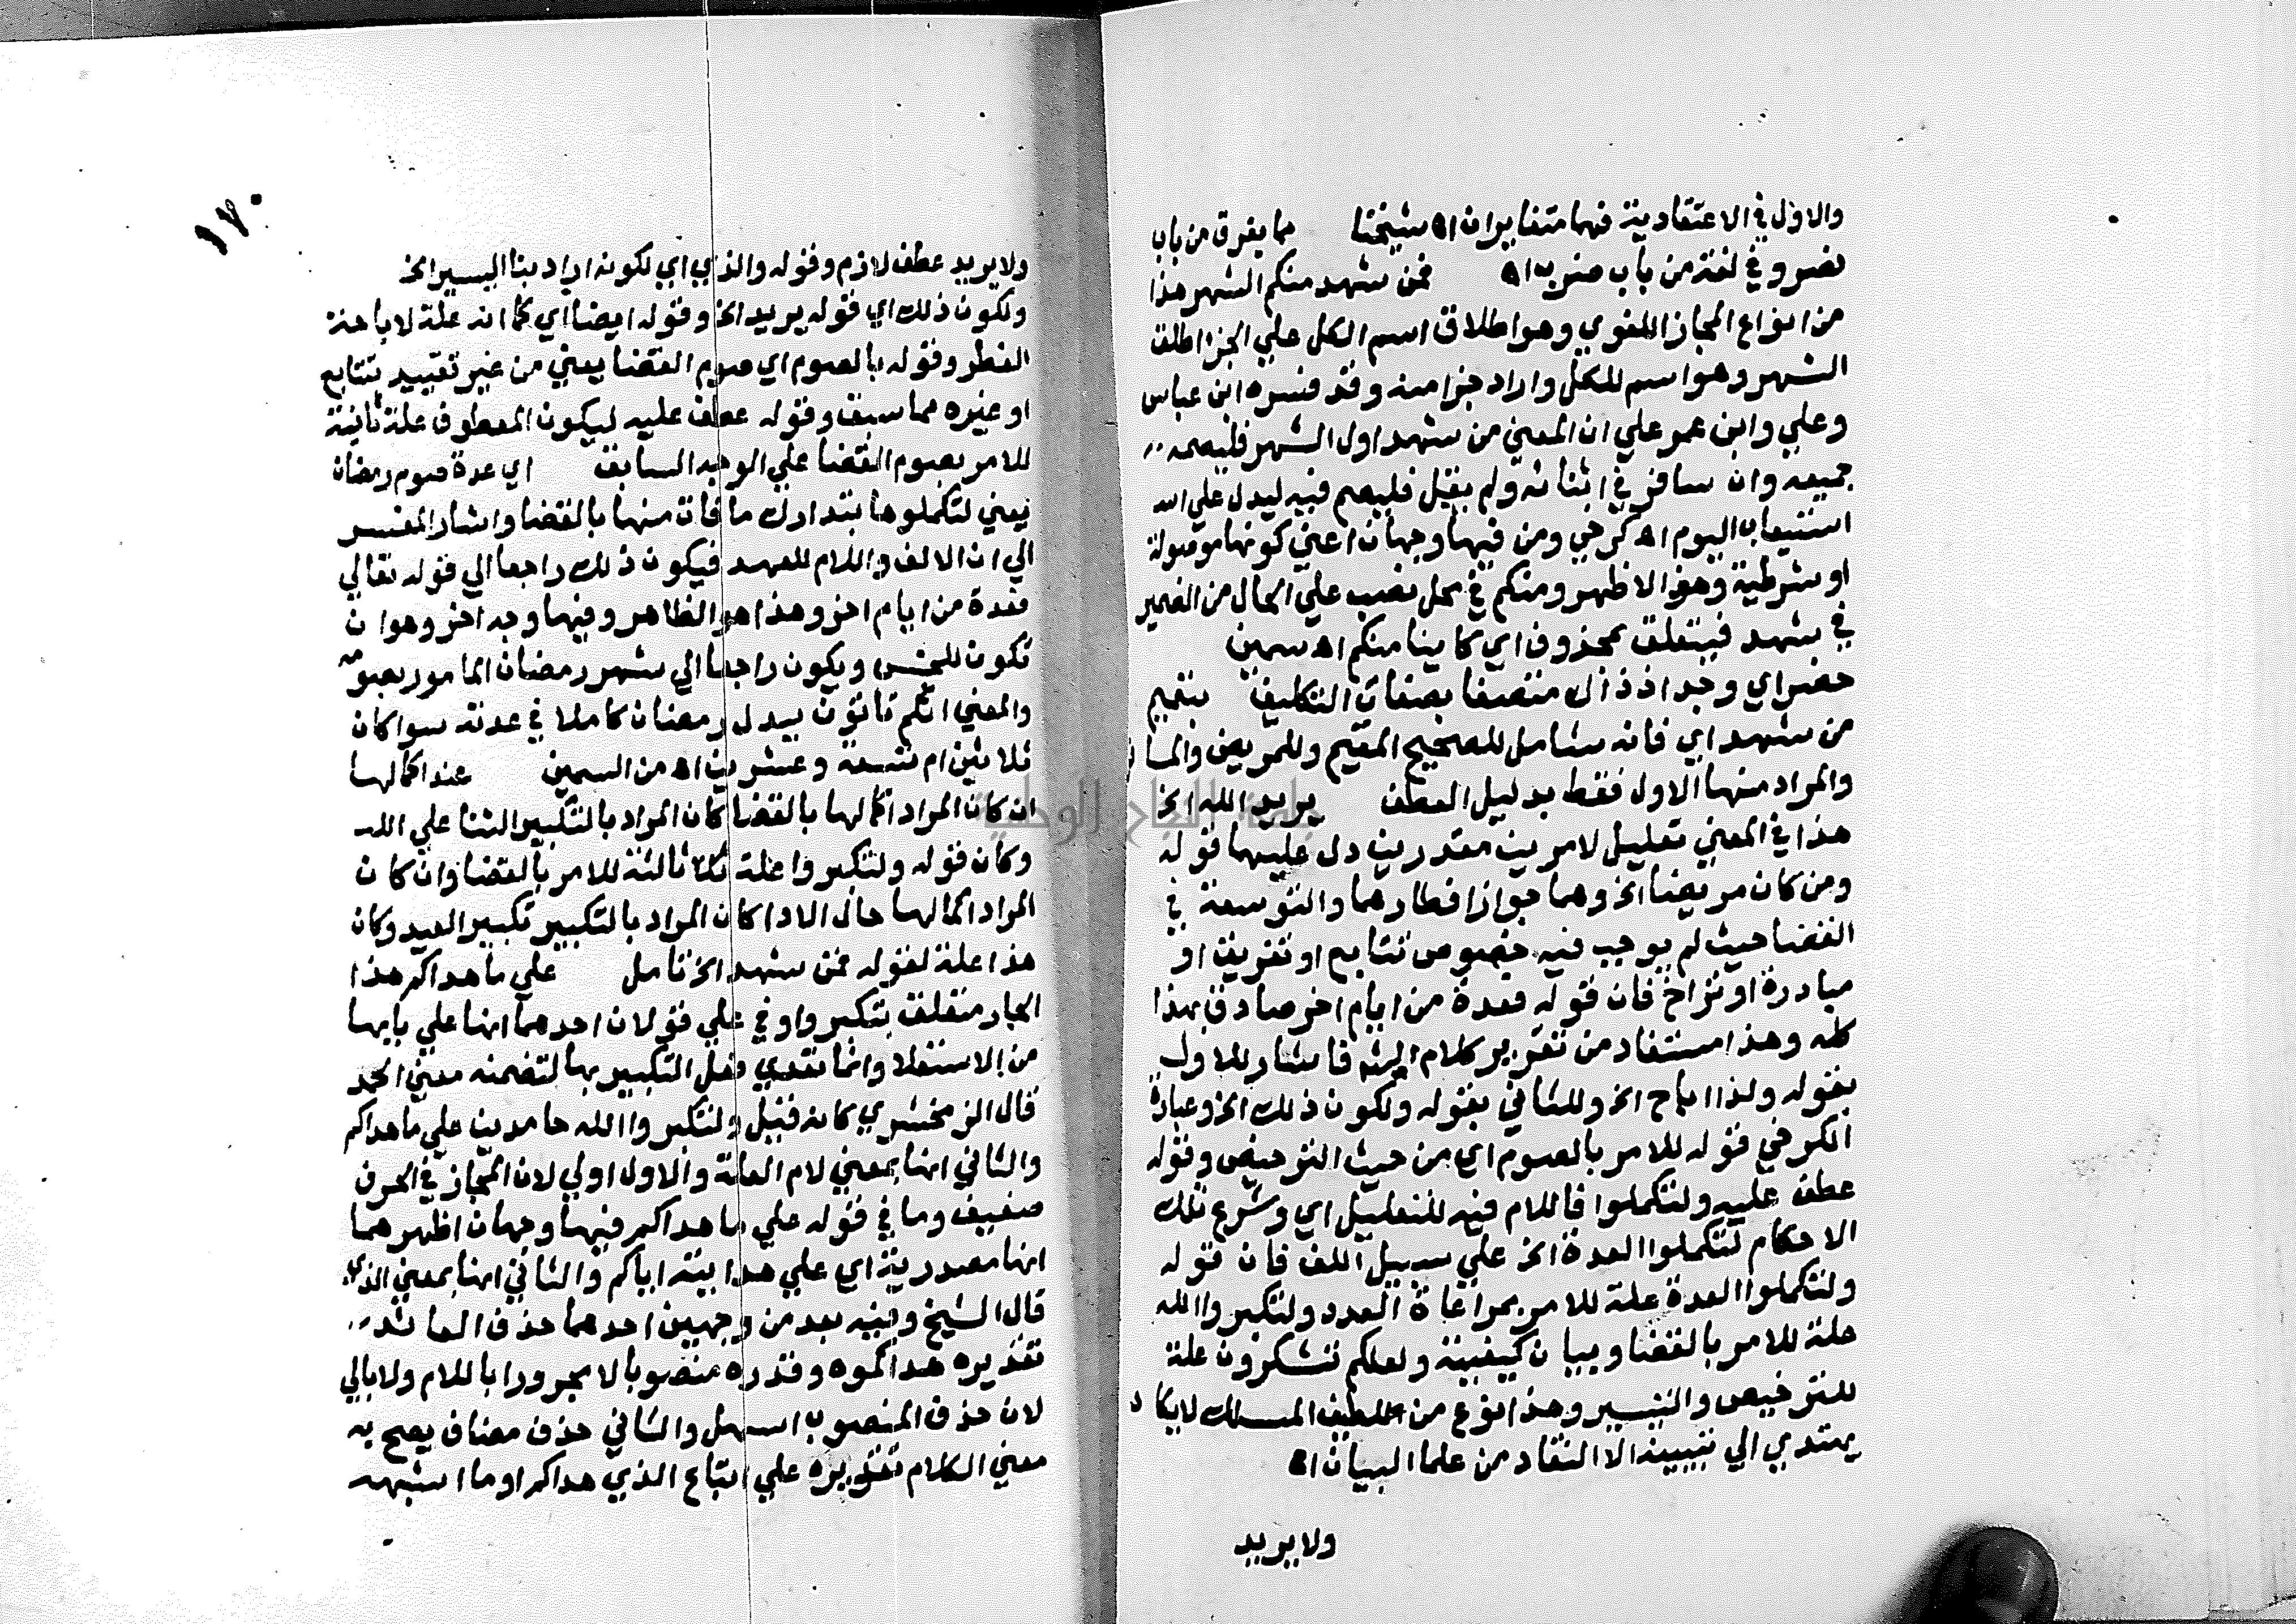 والاول في الاعتقادية فهما متغايران اه شيخنا مما يفرق من باب
نصر وفي لغة من باب ضرب اه فمن شهد منكم الشهر هذا
من انواع المجاز اللغوي وهو اطلاق اسم الكل علي الجزا طلق
الشهر وهو اسم للكل واراد جزا منه وقد فسره ابن عباس
وعلي وابن عمر علي ان المعني من شهد اول الشهر فليصمه
جميعه وان سافر في اثنائه ولم يقل فليصم فيه ليدل علي
استيعاب اليوم اه كرخي ومن فيها وجهان اعني كونها موصولة
او شرطية وهو الاظهر ومنكم في محل نصب علي الحال من الضمير
في شهد فيتعلق بمحذوف اي كاينا منكم اه سمين
حضر اي وجد اذ ذاك متصفا بصفات التكليف بتعميم
من شهد اي فانه شامل للصحيح المقيم وللمريض والمسافر
والمراد منها الاول فقط بدليل العطف يريد الله الخ
هذا في المعني تعليل لامرين مقدرين دل عليهما قوله
ومن كان مريضا الخ وهما جواز افطارهما والتوسعة في
القضا حيث لم يوجب فيه خصوص تتابع او تفريق او
مبادرة او تراخ فان قوله فعدة من ايام اخر صادق بهذا
كله وهذا مستفاد من تقرير كلام الشه فاشار للاول
بقوله ولذا اباح الخ وللثاني بقوله ولكون ذلك الخ وعبارة
الكرخي قوله للامر بالصوم اي من حيث الترخيص وقوله
عطف عليه ولتكملوا فاللام فيه للتعليل اي وشرع تلك
الاحكام لتكملوا العدة الخ علي سبيل اللف فان قوله
ولتكملوا العدة علة للامر بمراعاة العدد ولتكبروا الله
علة للامر بالقضا وبيان كيفيته ولعلكم تشكرون علة
للترخيص والتيسير وهذا نوع من اللطيف المسلك لا يكاد
يهتدي الي تبيينه الا النقاد من علما البيان اه
ولا يريد
١٧٠
ولا يريد عطف لازم وقوله والذي اي لكونه اراد بنا اليسير الخ
ولكون ذلك اي قوله يريد الخ وقوله ايضا اي كما انه علة لاباحة
الفطر وقوله بالصوم اي صوم القضا يعني من غير تقييد بتتابع
او غيره مما سبق وقوله عطف عليه ليكون المعطوف علة ثانية
للامر بصوم القضا علي الوجه السابق اي عدة صوم رمضان
يعني لتكملوها بتدارك ما فات منها بالقضا واشار المفسر
الي ان الالف واللام للعهد فيكون ذلك راجعا الي قوله تعالي
فعدة من ايام اخر وهذا هو الظاهر وفيها وجه اخر وهو ان
تكون للجنس ويكون راجعا الي شهر رمضان المامور بصومه
والمعني انكم تاتون ببدل رمضان كاملا في عدته سوا كان
ثلاثين ام تسعة وعشرين اه من السمين عند اكمالها
ان كان المراد اكمالها بالقضا كان المراد بالتكبير الثنا علي الله
وكان قوله ولتكبروا علة ثالثة للامر بالقضا وان كان
المراد اكمالها حال الادا كان المراد بالتكبير تكبير العيد وكان
هذا علة لقوله فمن شهد الخ تامل علي ما هداكم هذا
الجار متعلق بتكبروا وفي علي قولان احدهما انها علي بابها
من الاستعلا وانما تعدي فعل التكبير بها لتضمنه معني الحمد
قال الزمخشري كانه قيل ولتكبروا الله حامدين علي ما هداكم
والثاني انها بمعني لام العلة والاول اولي لان المجاز في الحرف
ضعيف وما في قوله علي ما هداكم فيها وجهان اظهرهما
انها مصدرية اي علي هدايته اياكم والثاني انها بمعني الذي
قال الشيخ وفيه بعد من وجهين احدهما حذف العائد
تقديره هداكموه وقدره منصوبا لا مجرورا باللام ولا بالي
لان حذف المنصوب اسهل والثاني حذف مضاف يصح به
معني الكلام تقديره علي اتباع الذي هداكم او ما اشبهه